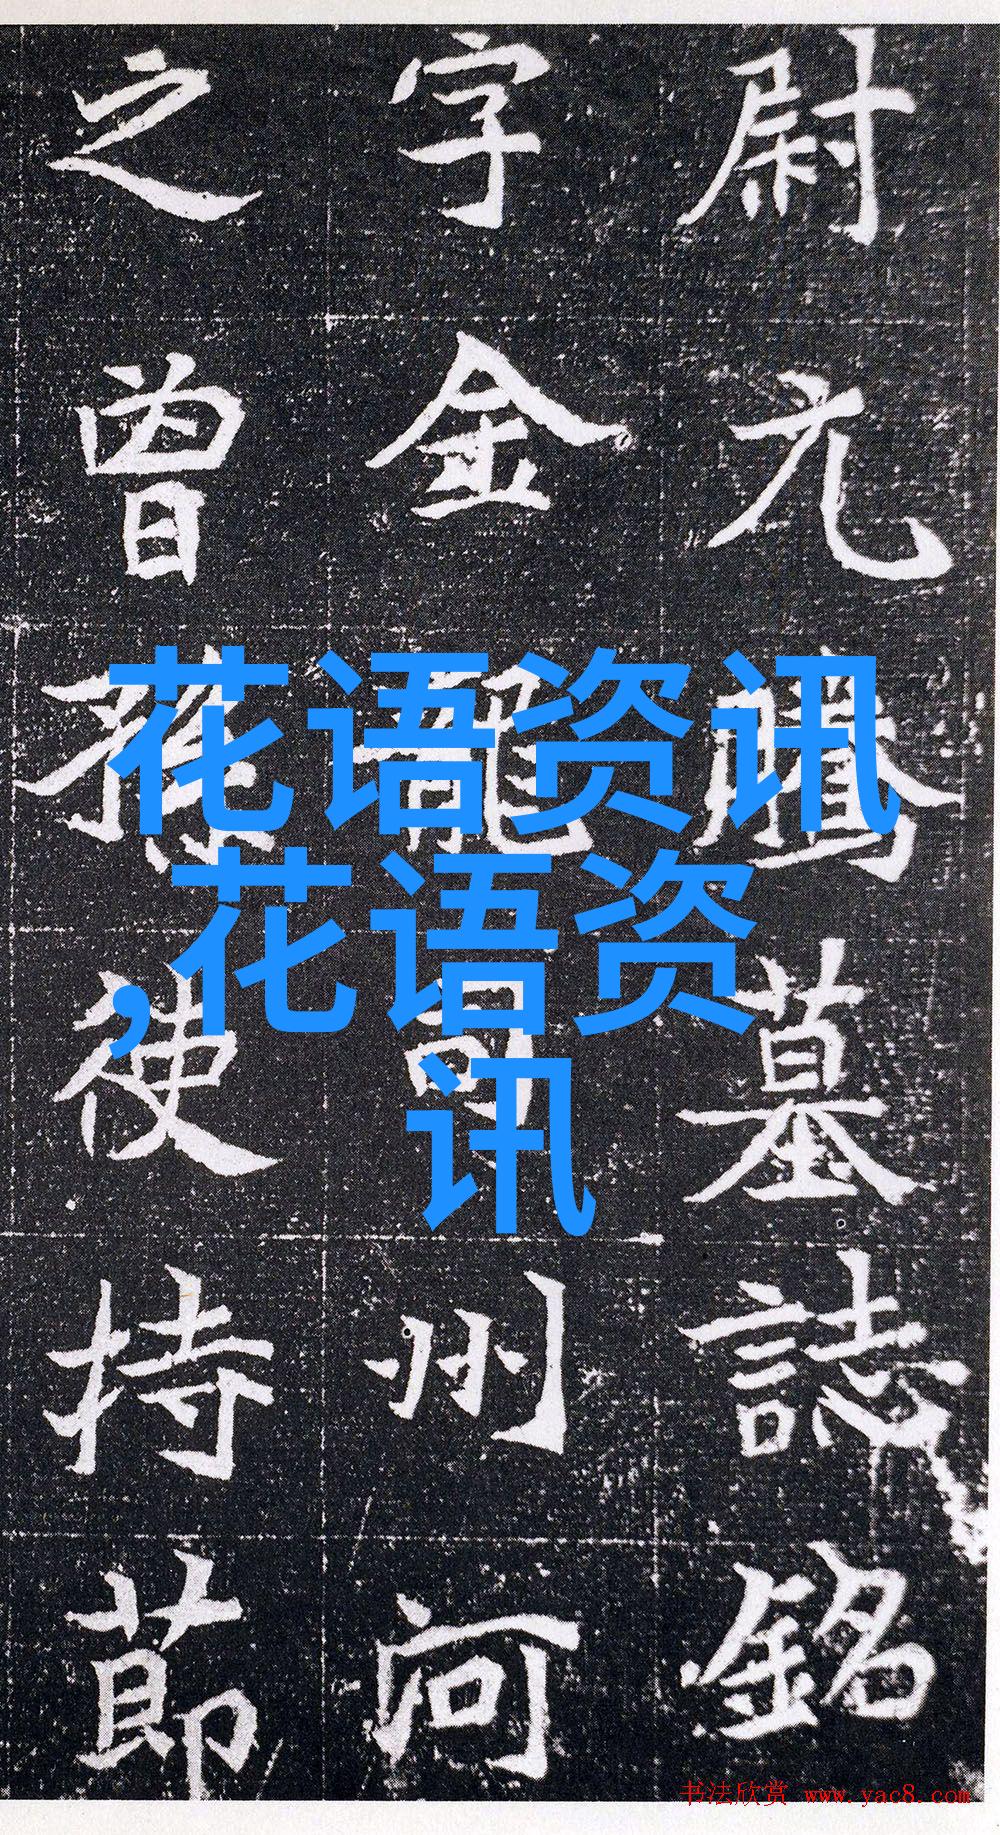 尉元騰墓誌銘
字金龍司州河
之曾孫使持節
花语资讯
,花语资
讯
书法欣赏 www.yac8.com